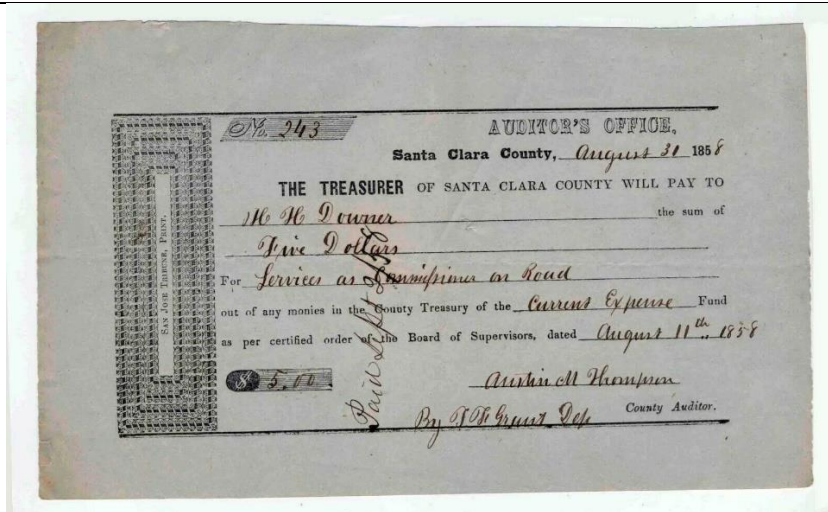 No. 243
AUDITOR'S OFFICE,
Santa Clara County, August 31 1858
THE TREASURER OF SANTA CLARA COUNTY WILL PAY TO
H H Downer the sum of
Five Dollars
For Services as Commissioner on Road
out of any monies in the County Treasury of the Current Expense Fund
as per certified order of the Board of Supervisors, dated August 11th, 1858
$ 5.00
Austin M Thompson
County Auditor.
By Grant Dep
SAN JOSE TRIBUNE, PRINT.
Paid Sept